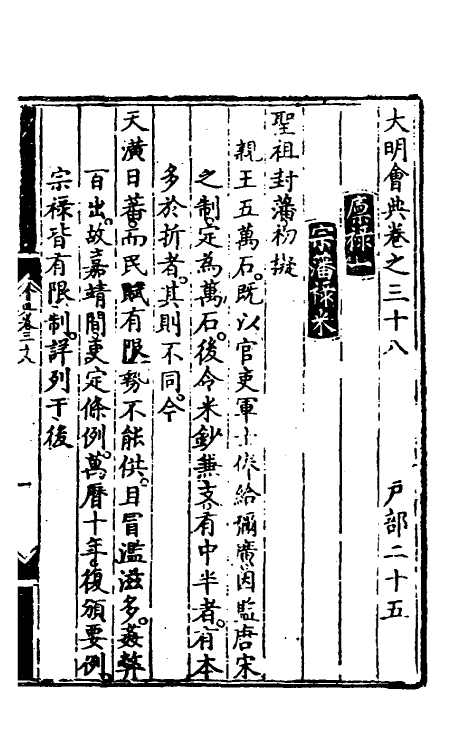 大明會典卷之三十八 戶部二十五
廩祿一
宗藩祿米
聖祖封藩初擬
親王五萬石。既以官吏軍士俸給彌廣。因監唐宋
之制。定為萬石。後令米鈔兼支。有中半者。有本
多於折者。其則不同。今
天潢日蕃。而民賦有限。勢不能供。且冒濫滋多。姦弊
百出。故嘉靖間。更定條例。萬曆十年。復頒要例。
宗祿皆有限制。詳列于後